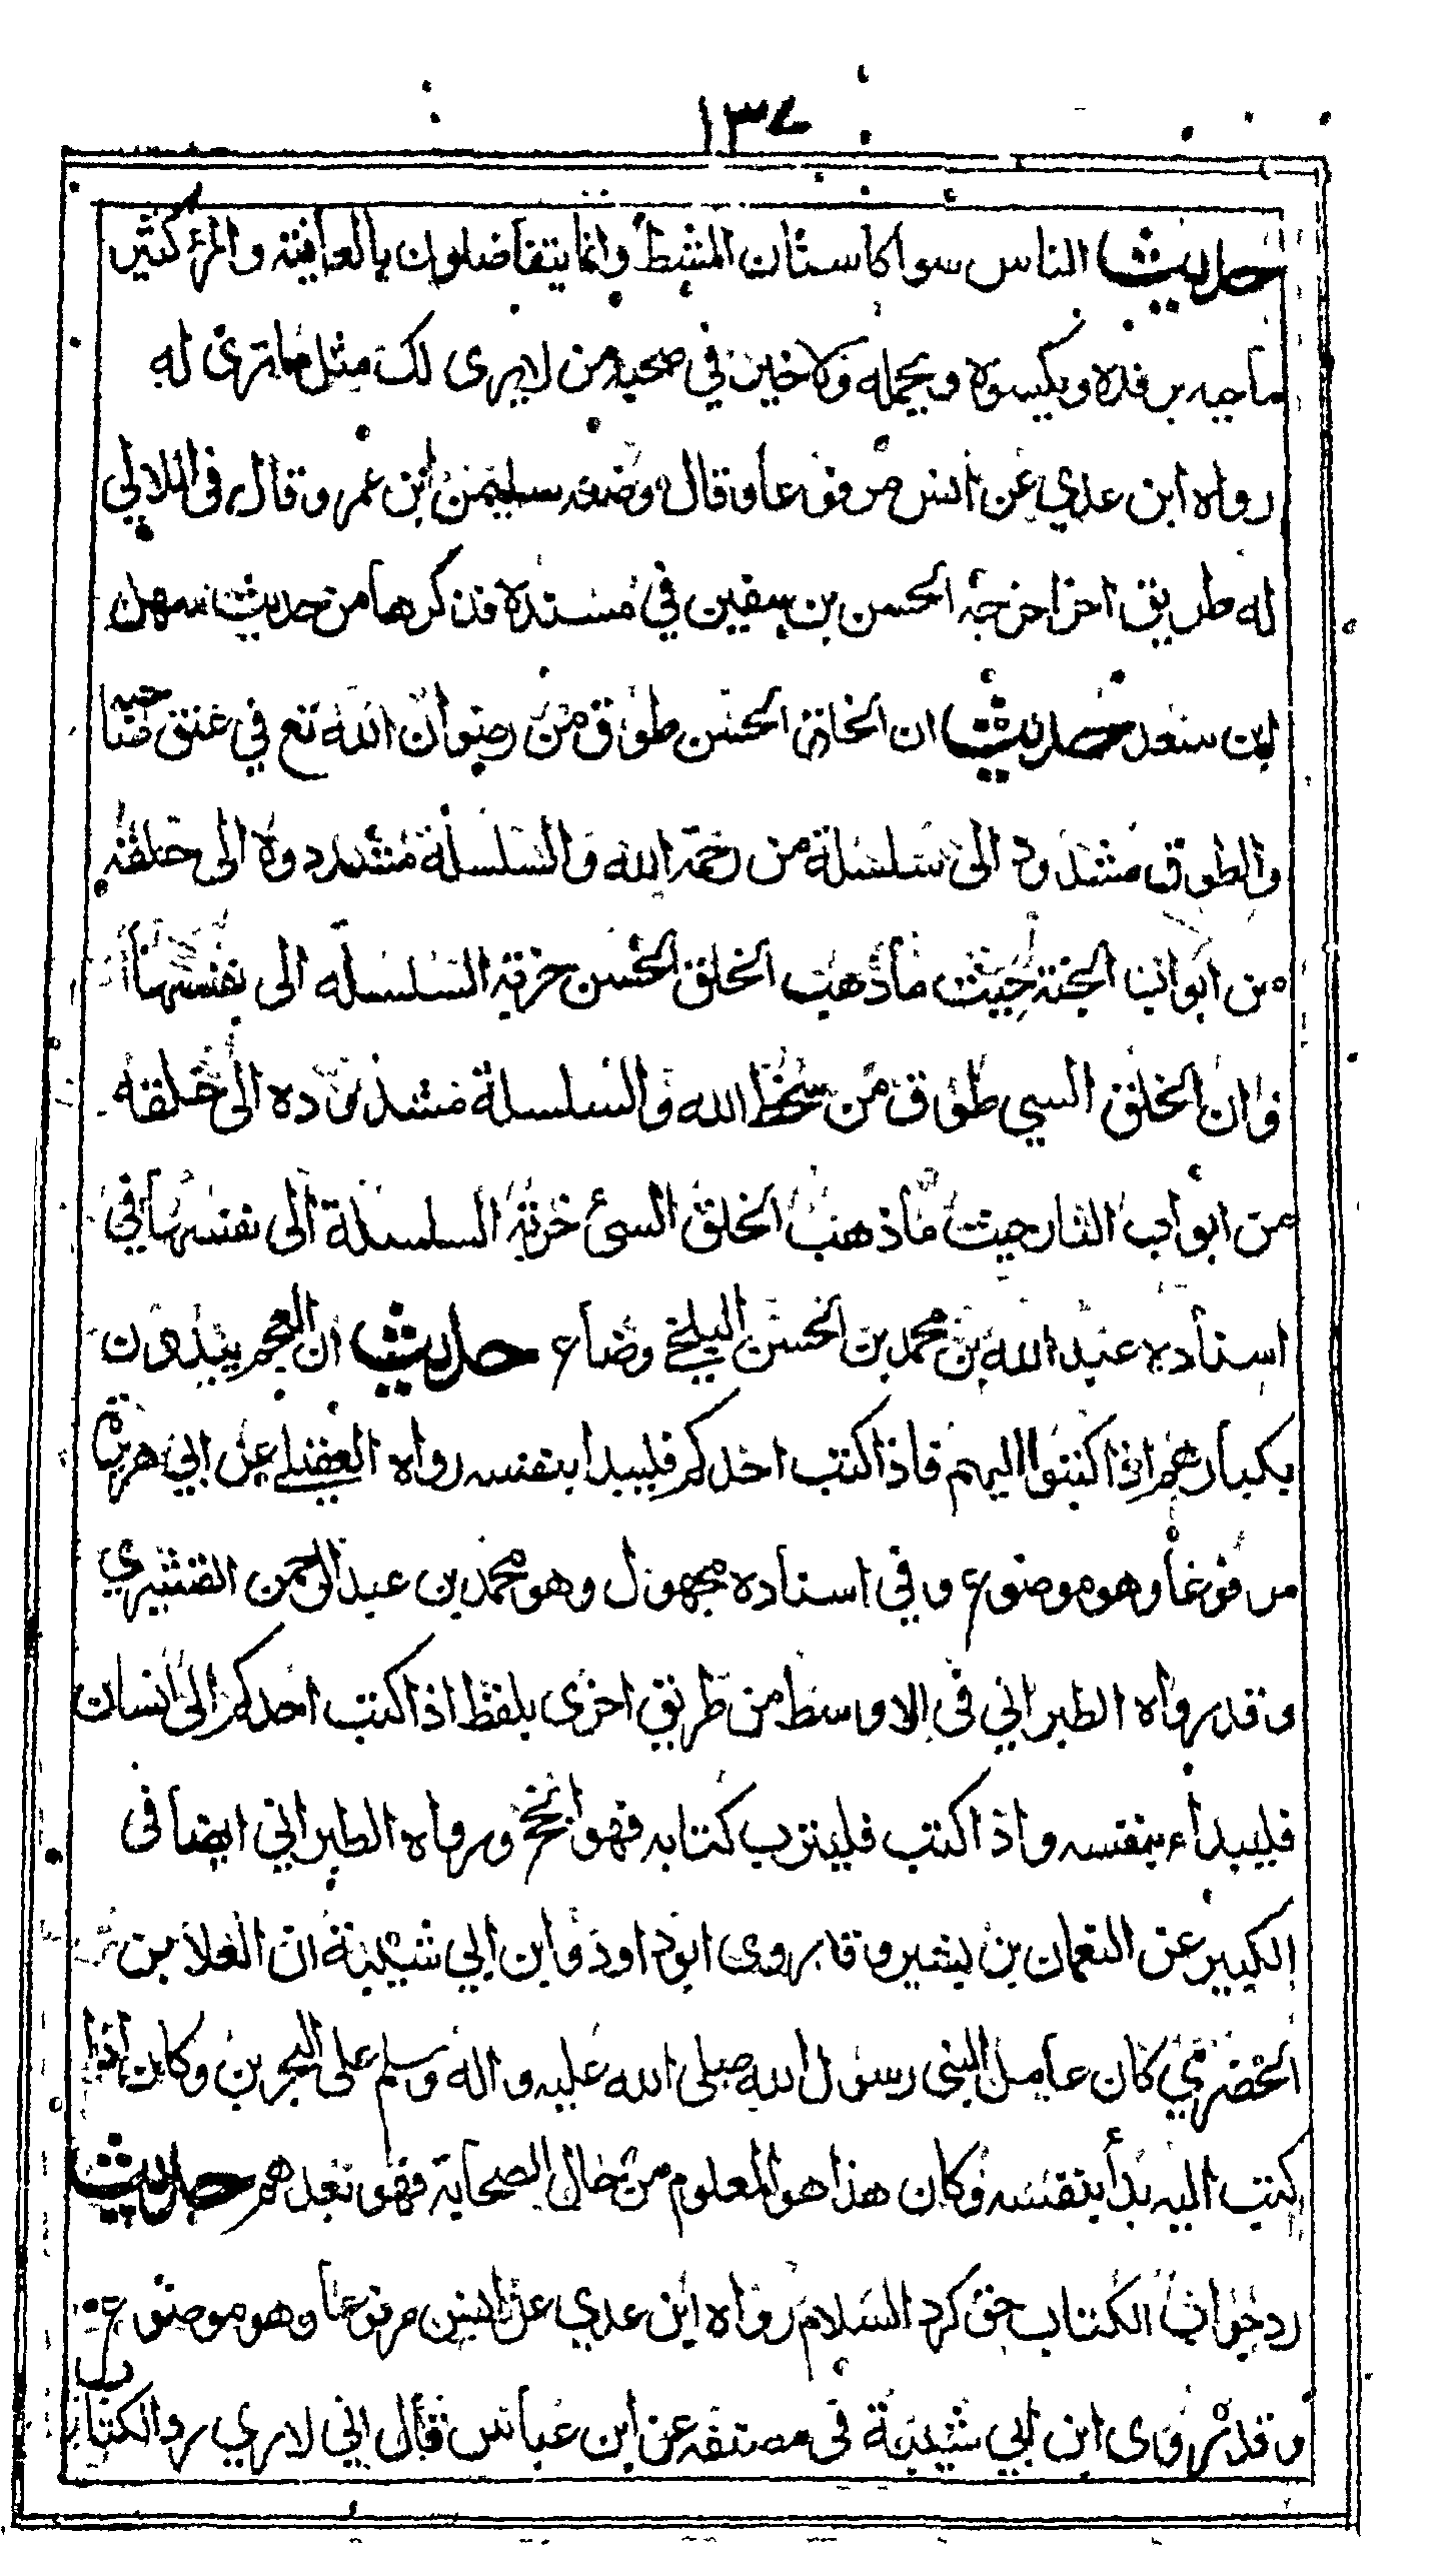 ١٣٧
حديث الناس سوا كاسنان المشط وانما يتفاضلون بالعافيته والمرء كثير
باخيه يرفده ويكسوه ويحمله ولا خير في صحبه من لا يرى لك مثل ما ترى له
رواه ابن عدي عن انس مرفوعا وقال وضعه سليمن ابن عمر وقال في اللالي
له طريق اخر اخرجه الحسن بن سفين في مسنده فذكرها من حديث سهل
ابن سعد حديث ان الخلق الحسن طوق من رضوان الله تع في عنق صاحبه
والطوق مشدود الى سلسلة من رحمة الله والسلسلة مشدوده الى حلقه
من ابواب الجنة حيث ما ذهب الخلق الحسن جرته السلسله الى نفسها
وان الخلق السي طوق من سخط الله والسلسلة مشدوده الى حلقه
من ابواب النار حيث ما ذهب الخلق السئ جرته السلسلة الى نفسها في
اسناده عبد الله بن محمد بن الحسن البلخي وضاع حديث ان العجم يبدون
بكبارهم اذا كتبوا اليهم فاذا كتب احدكم فليبدا بنفسه رواه العقيلي عن ابي هريرة
مرفوعا وهو موضوع وفي اسناده مجهول وهو محمد بن عبد الرحمن القشيري
وقد رواه الطبراني في الاوسط من طريق اخرى بلفظ اذا كتب احدكم الى انسان
فليبداء بنفسه واذا كتب فليترب كتابه فهو انجح ورواه الطبراني ايضا في
الكبير عن النعمان بن بشير وقد روى ابو داود وابن ابي شيبة ان العلا بن
الحضرمي كان عامل النبي رسول الله صلى الله عليه واله وسلم على البحرين وكان اذا
كتب اليه بدأ بنفسه وكان هذا هو المعلوم من حال الصحابة فهو بعدهم حديث
رد جواب الكتاب حق كرد السلام رواه ابن عدي عن انس مرفوعا وهو موضوع
وقد روى ابن ابي شيبة في مصنفه عن ابن عباس قال اني لا رري رد الكتاب